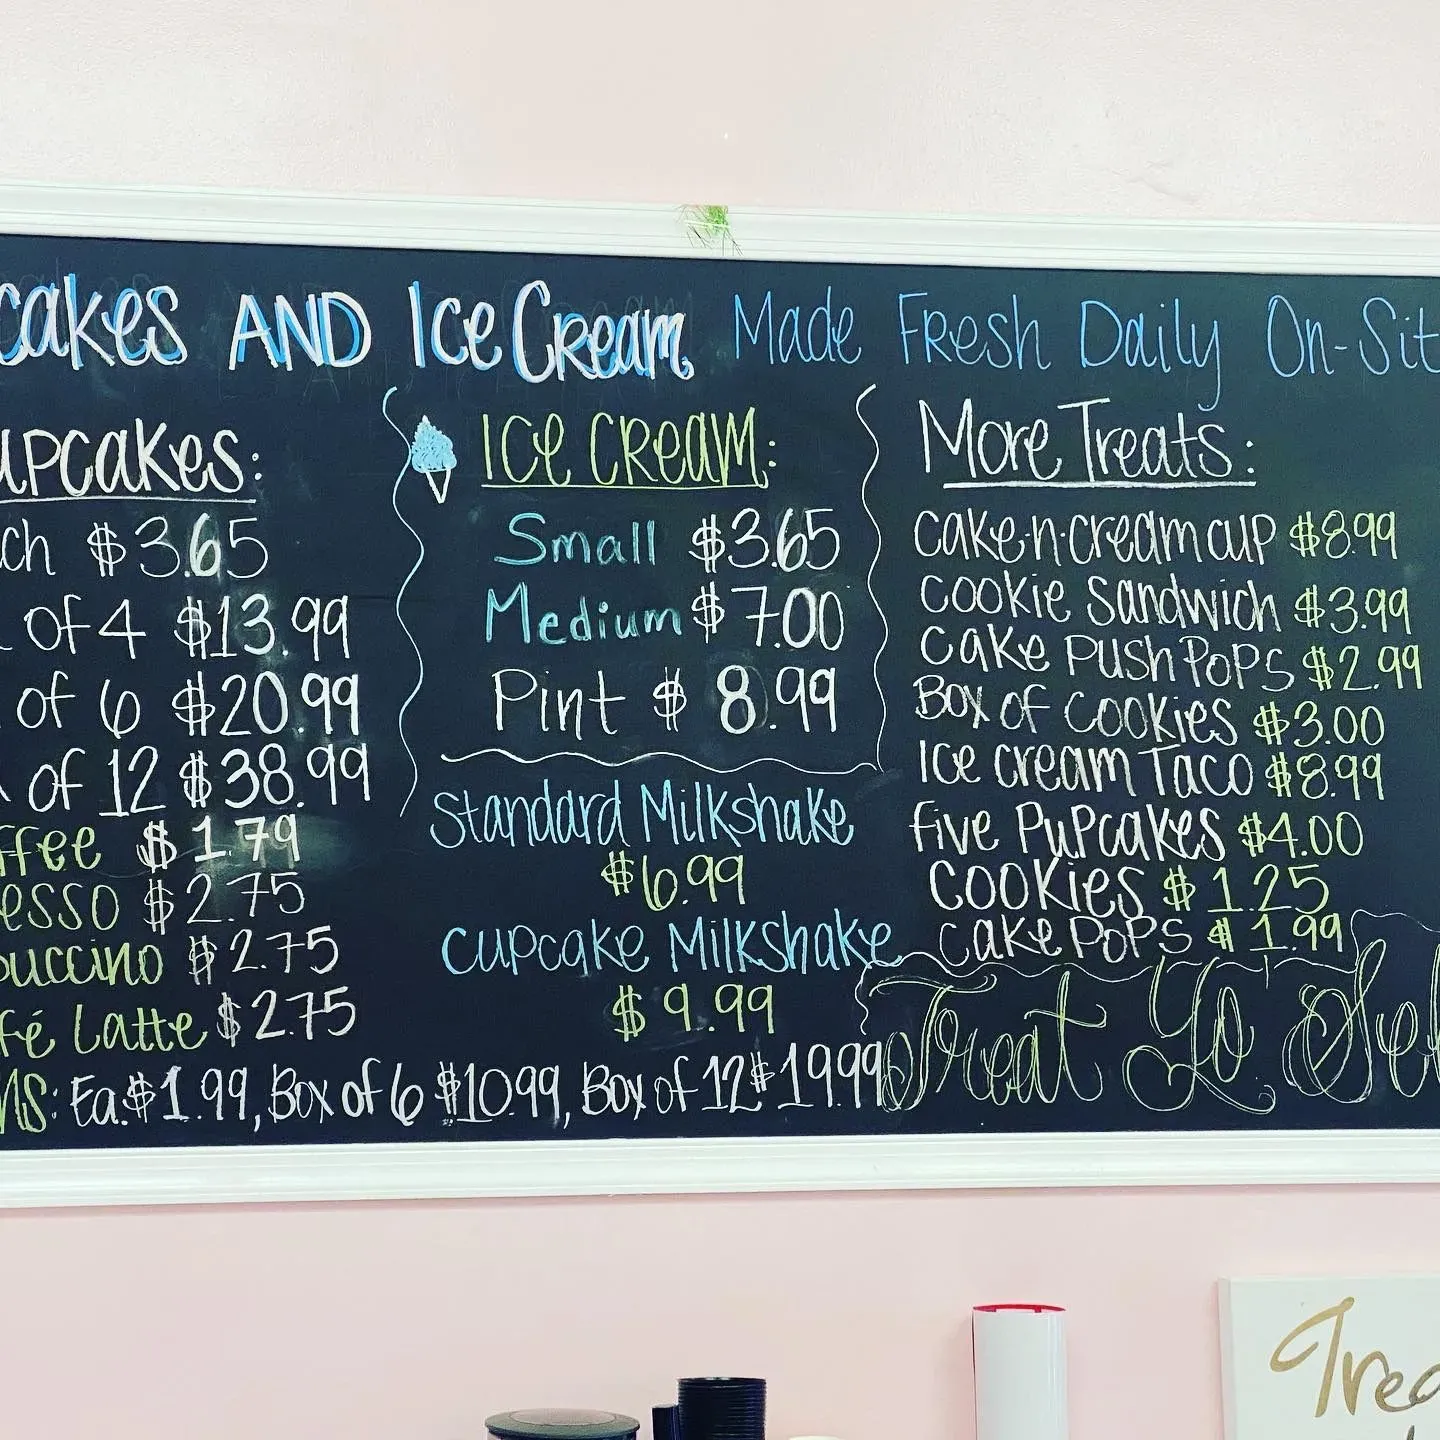 cakes AND Ice Cream Made Fresh Daily On-Sit
upcakes:
ch $3.65
of 4 $13.99
of 6 $20.99
of 12 $38.99
ffee $1.79
esso $2.75
puccino $2.75
fé Latte $2.75
NS: Ea. $1.99, Box of 6 $10.99, Box of 12 $19.99
Ice Cream:
Small $3.65
Medium $7.00
Pint $8.99
Standard Milkshake
$6.99
Cupcake Milkshake
$9.99
More Treats:
cake-n-cream cup $8.99
cookie sandwich $3.99
cake Push Pops $2.99
Box of Cookies $3.00
Ice cream Taco $8.99
five Pupcakes $4.00
Cookies $1.25
cake pops $1.99
Treat Yo Sel
Trea